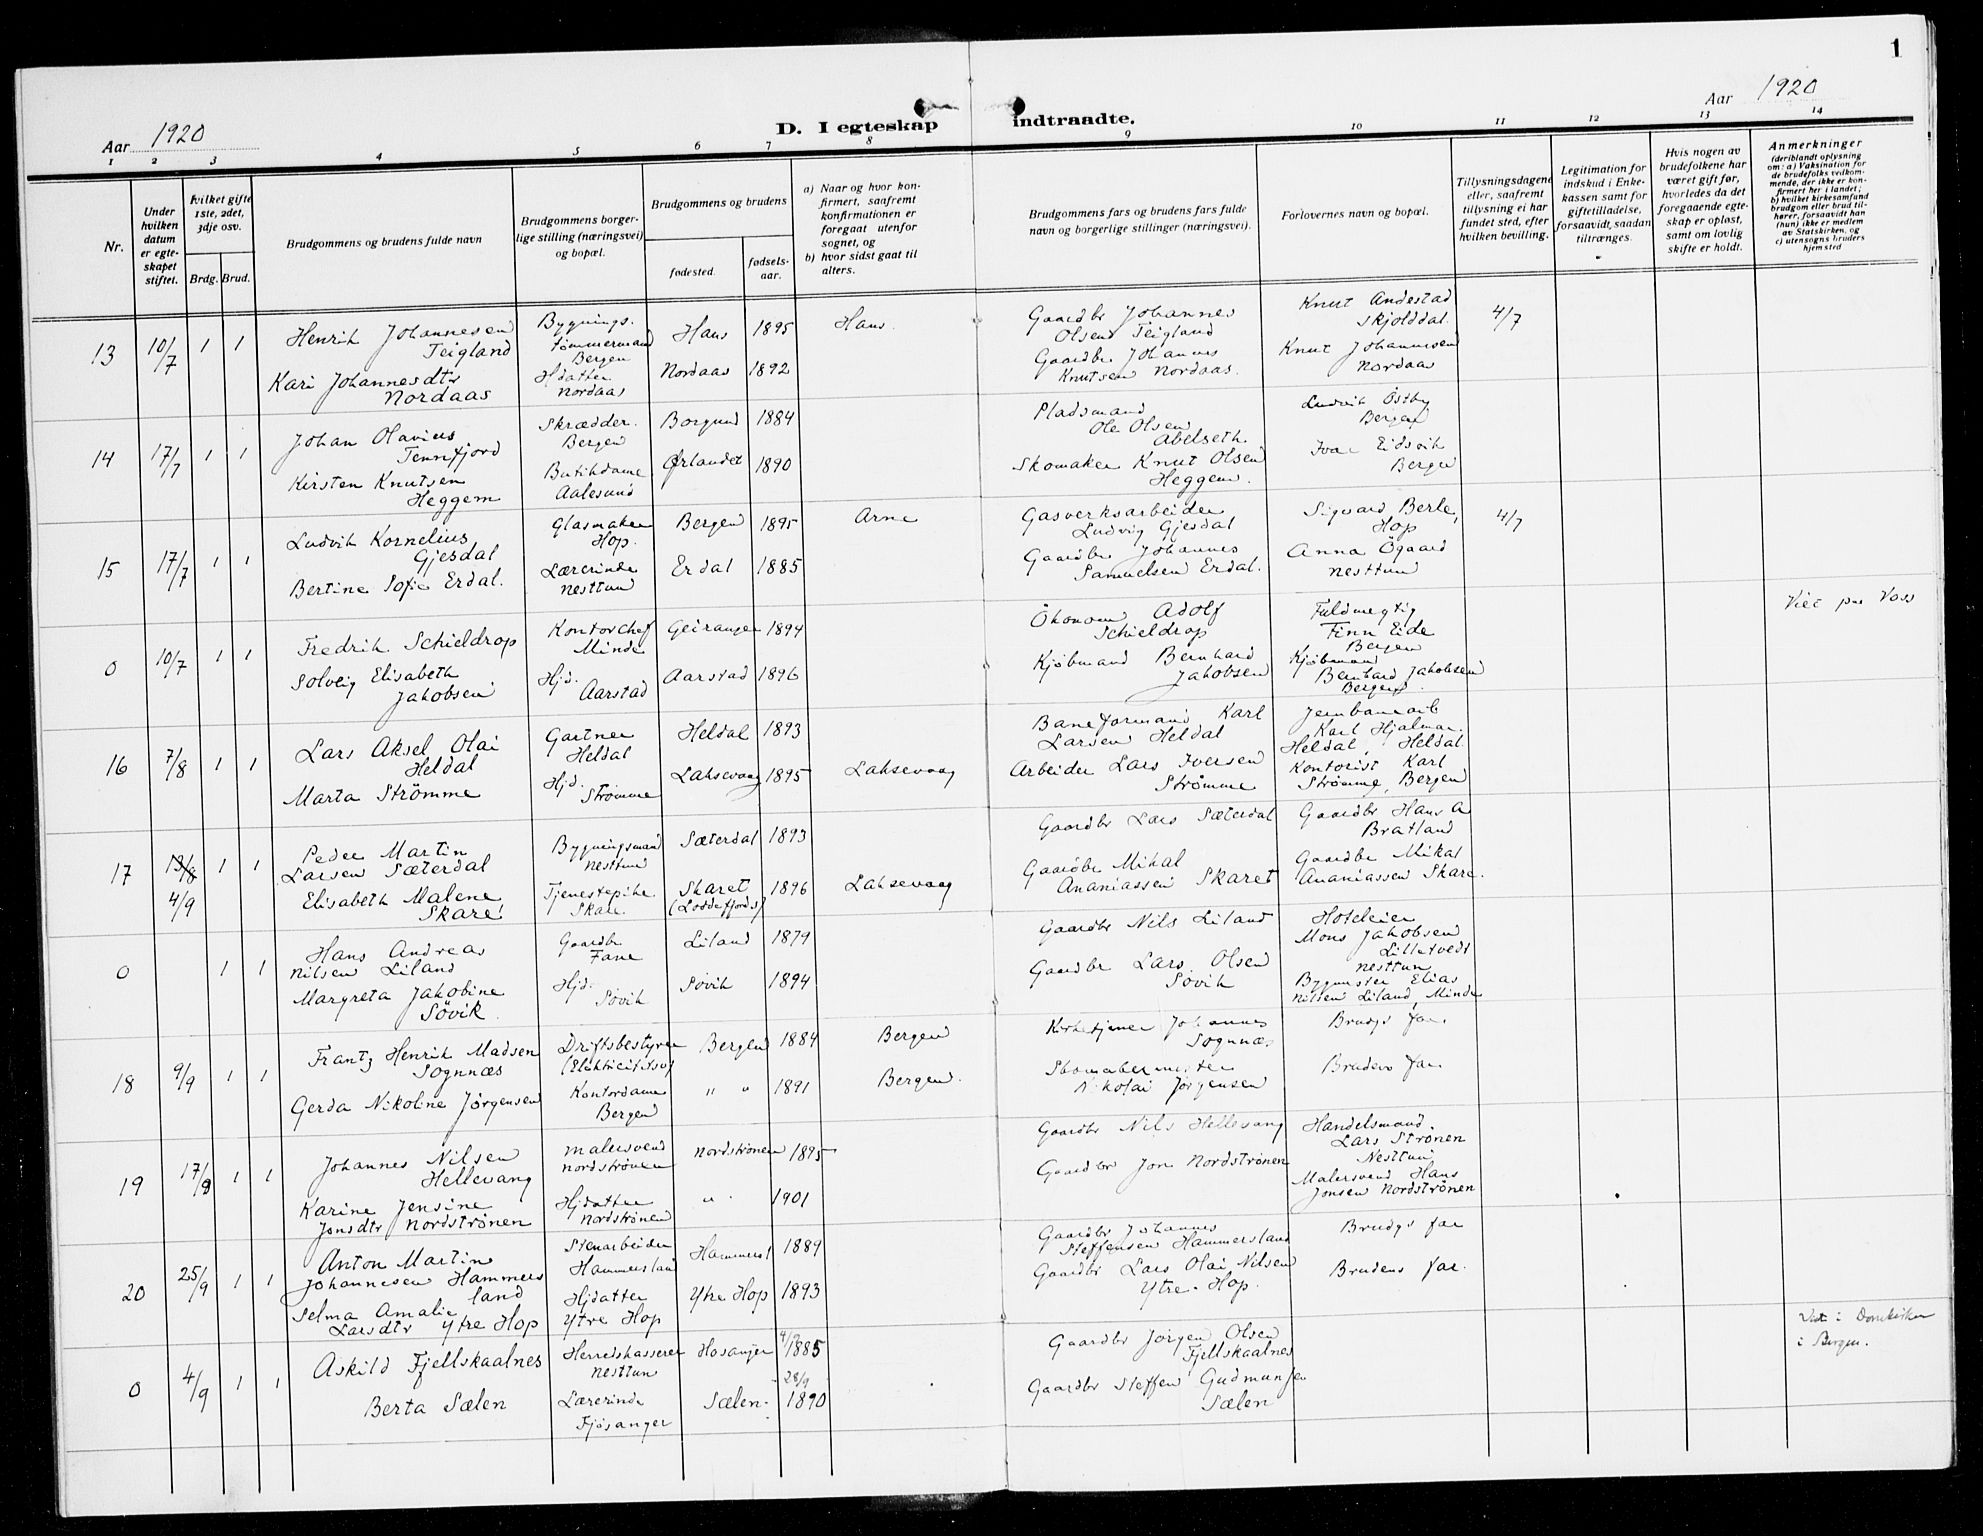 1
Aar 1920
Aar 1920
D. I egteskap indtraadte.
1 2 3 4 5 6 7 8 9 10 11 12 13 14
Nr.
Under hvilken datum er egteskapet stiftet.
hvilket gifte 1ste, 2det, 3dje osv.
Brdg. Brud.
Brudgommens og brudens fulde navn
Brudgommens borgerlige stilling (næringsvei) og bopæl.
Brudgommens og brudens
fødested.
fødselsaar.
a) Naar og hvor konfirmert, saafremt konfirmationen er foregaat utenfor sognet, og
b) hvor sidst gaat til alters.
Brudgommens fars og brudens fars fulde navn og borgerlige stillinger (næringsvei).
Forlovernes navn og bopæl.
Tillysningsdagene eller, saafremt tillysning ei har fundet sted, efter hvilken bevilling.
Legitimation for indskud i Enkekassen samt for giftetilladelse, forsaavidt, saadan tiltrænges.
Hvis nogen av brudefolkene har været gift før, hvorledes da det foregaaende egteskap er opløst, samt om lovlig skifte er holdt.
Anmerkninger
(deriblandt oplysning om: a) Vaksination for de brudefolks vedkommende, der ikke er konfirmert her i landet; b) hvilket kirkesamfund brudgom eller brud tilhører, forsaavidt han (hun) ikke er medlem av Statskirken, og c) utensogns bruders hjemsted
13 10/7 1 1 Henrik Johannesen Teigland Bygningstømmermand Bergen Haus 1895 Haus. Gaardbr Johannes Olsen Teigland Knut Andestad Skjolddal. 4/7
Kari Johannesdtr Nordaas Hjdatter Nordaas Nordaas 1892 Gaardbr Johannes Knutsen Nordaas. Knut Johannesen Nordaas
14 17/7 1 1 Johan Olavius Tennfjord Skrædder. Bergen Borgund 1884 Pladsmand Ole Olsen Abelseth. Ludvik Östby Bergen
Kirsten Knutsen Heggem Butikdame Aalesund Ørlandet 1890 Skomaker Knut Olsen Heggem. Ivar Eidsvik Bergen
15 17/7 1 1 Ludvik Kornelius Gjesdal Glasmaker Hop. Bergen 1895 Arne Gasverksarbeider Ludvig Gjesdal Sigvard Berle, Hop 4/7
Bertine Sofie Erdal. Lærerinde Nesttun Erdal 1885 Gaardbr Johannes Samuelsen Erdal. Anna Ögaard Nesttun
0 10/7 1 1 Fredrik Schieldrop Kontorchef Minde Geiranger 1894 Ökonom Adolf Schieldrop Fuldmegtig Finn Eide Bergen Viet paa Voss
Solveig Elisabeth Jakobsen Hjd. Aarstad Aarstad 1896 Kjøbmand Bernhard Jakobsen Kjøbmand Bernhard Jakobsen Bergen.
16 7/8 1 1 Lars Aksel Olai Heldal Gartner Heldal Heldal 1893 Baneformand Karl Larsen Heldal Jernbanearb Karl Hjalmar Heldal, Heldal
Marta Strömme Hjd. Strømme Laksevaag 1895 Laksevaag Arbeider Lars Iversen Strømme Kontorist Karl Strømme, Bergen
17 13/8 4/9 1 1 Peder Martin Larsen Sæterdal Bygningsmand Nesttun Sæterdal 1893 Gaardbr Lars Sæterdal Gaardbr Hans A Bratland
Elisabeth Malene Skare Tjenestepike Skare. Skaret (Loddefjord) 1896 Laksevaag Gaardbr Mikal Ananiassen Skaret Gaardbr Mikal Ananiassen Skare.
0 1 1 Hans Andreas Nilsen Liland Gaardbr Fane Liland 1879 Gaardbr Nils Liland Hoteleier Mons Jakobsen Lilletvedt Nesttun
Margreta Jakobine Søvik. Hjd. Søvik Søvik 1894 Gaardbr Lars Olsen Søvik Bygmester Elias Nilsen Liland, Minde
18 9/9 1 1 Frantz Henrik Madsen Sognnæs Driftsbestyrer (Elektricitetsv) Bergen 1884 Bergen Kirketjener Johannes Sognnæs Brudgs far.
Gerda Nikoline Jørgensen Kontordame Bergen " " 1891 Bergen. Skomakermester Nikolai Jørgensen Brudens far.
19 17/9 1 1 Johannes Nilsen Hellevang Malersvend Nordstrønen Nordstrønen 1895 Gaardbr Nils Hellevang Handelsmand. Lars Strønen Nesttun
Karine Jensine Jonsdtr Nordstrønen Hjdatter Nordstrønen " 1901 Gaardbr Jon Nordstrønen Malersvend Hans Jonsen Nordstrønen
20 25/9 1 1 Anton Martin Johannesen Hammersland Stenarbeider Hammersland Hammersl 1889 Gaardbr Johannes Steffensen Hammersland Brudgs far
Selma Amalie Larsdtr Ytre Hop Hjdatter Ytre Hop Ytre Hop 1893 Gaardbr Lars Olai Nilsen Ytre-Hop. Brudens far.
0 4/9 1 1 Askild Fjellskaalnes Herredskasserer Nesttun Hosanger 4/9 1885 Gaardbr Jörgen Olsen Fjellskaalnes Viet i Domkirken i Bergen.
Berta Sælen Lærerinde Fjøsanger Sælen. 28/9 1890 Gaardbr Steffen Gudmunsen Sælen